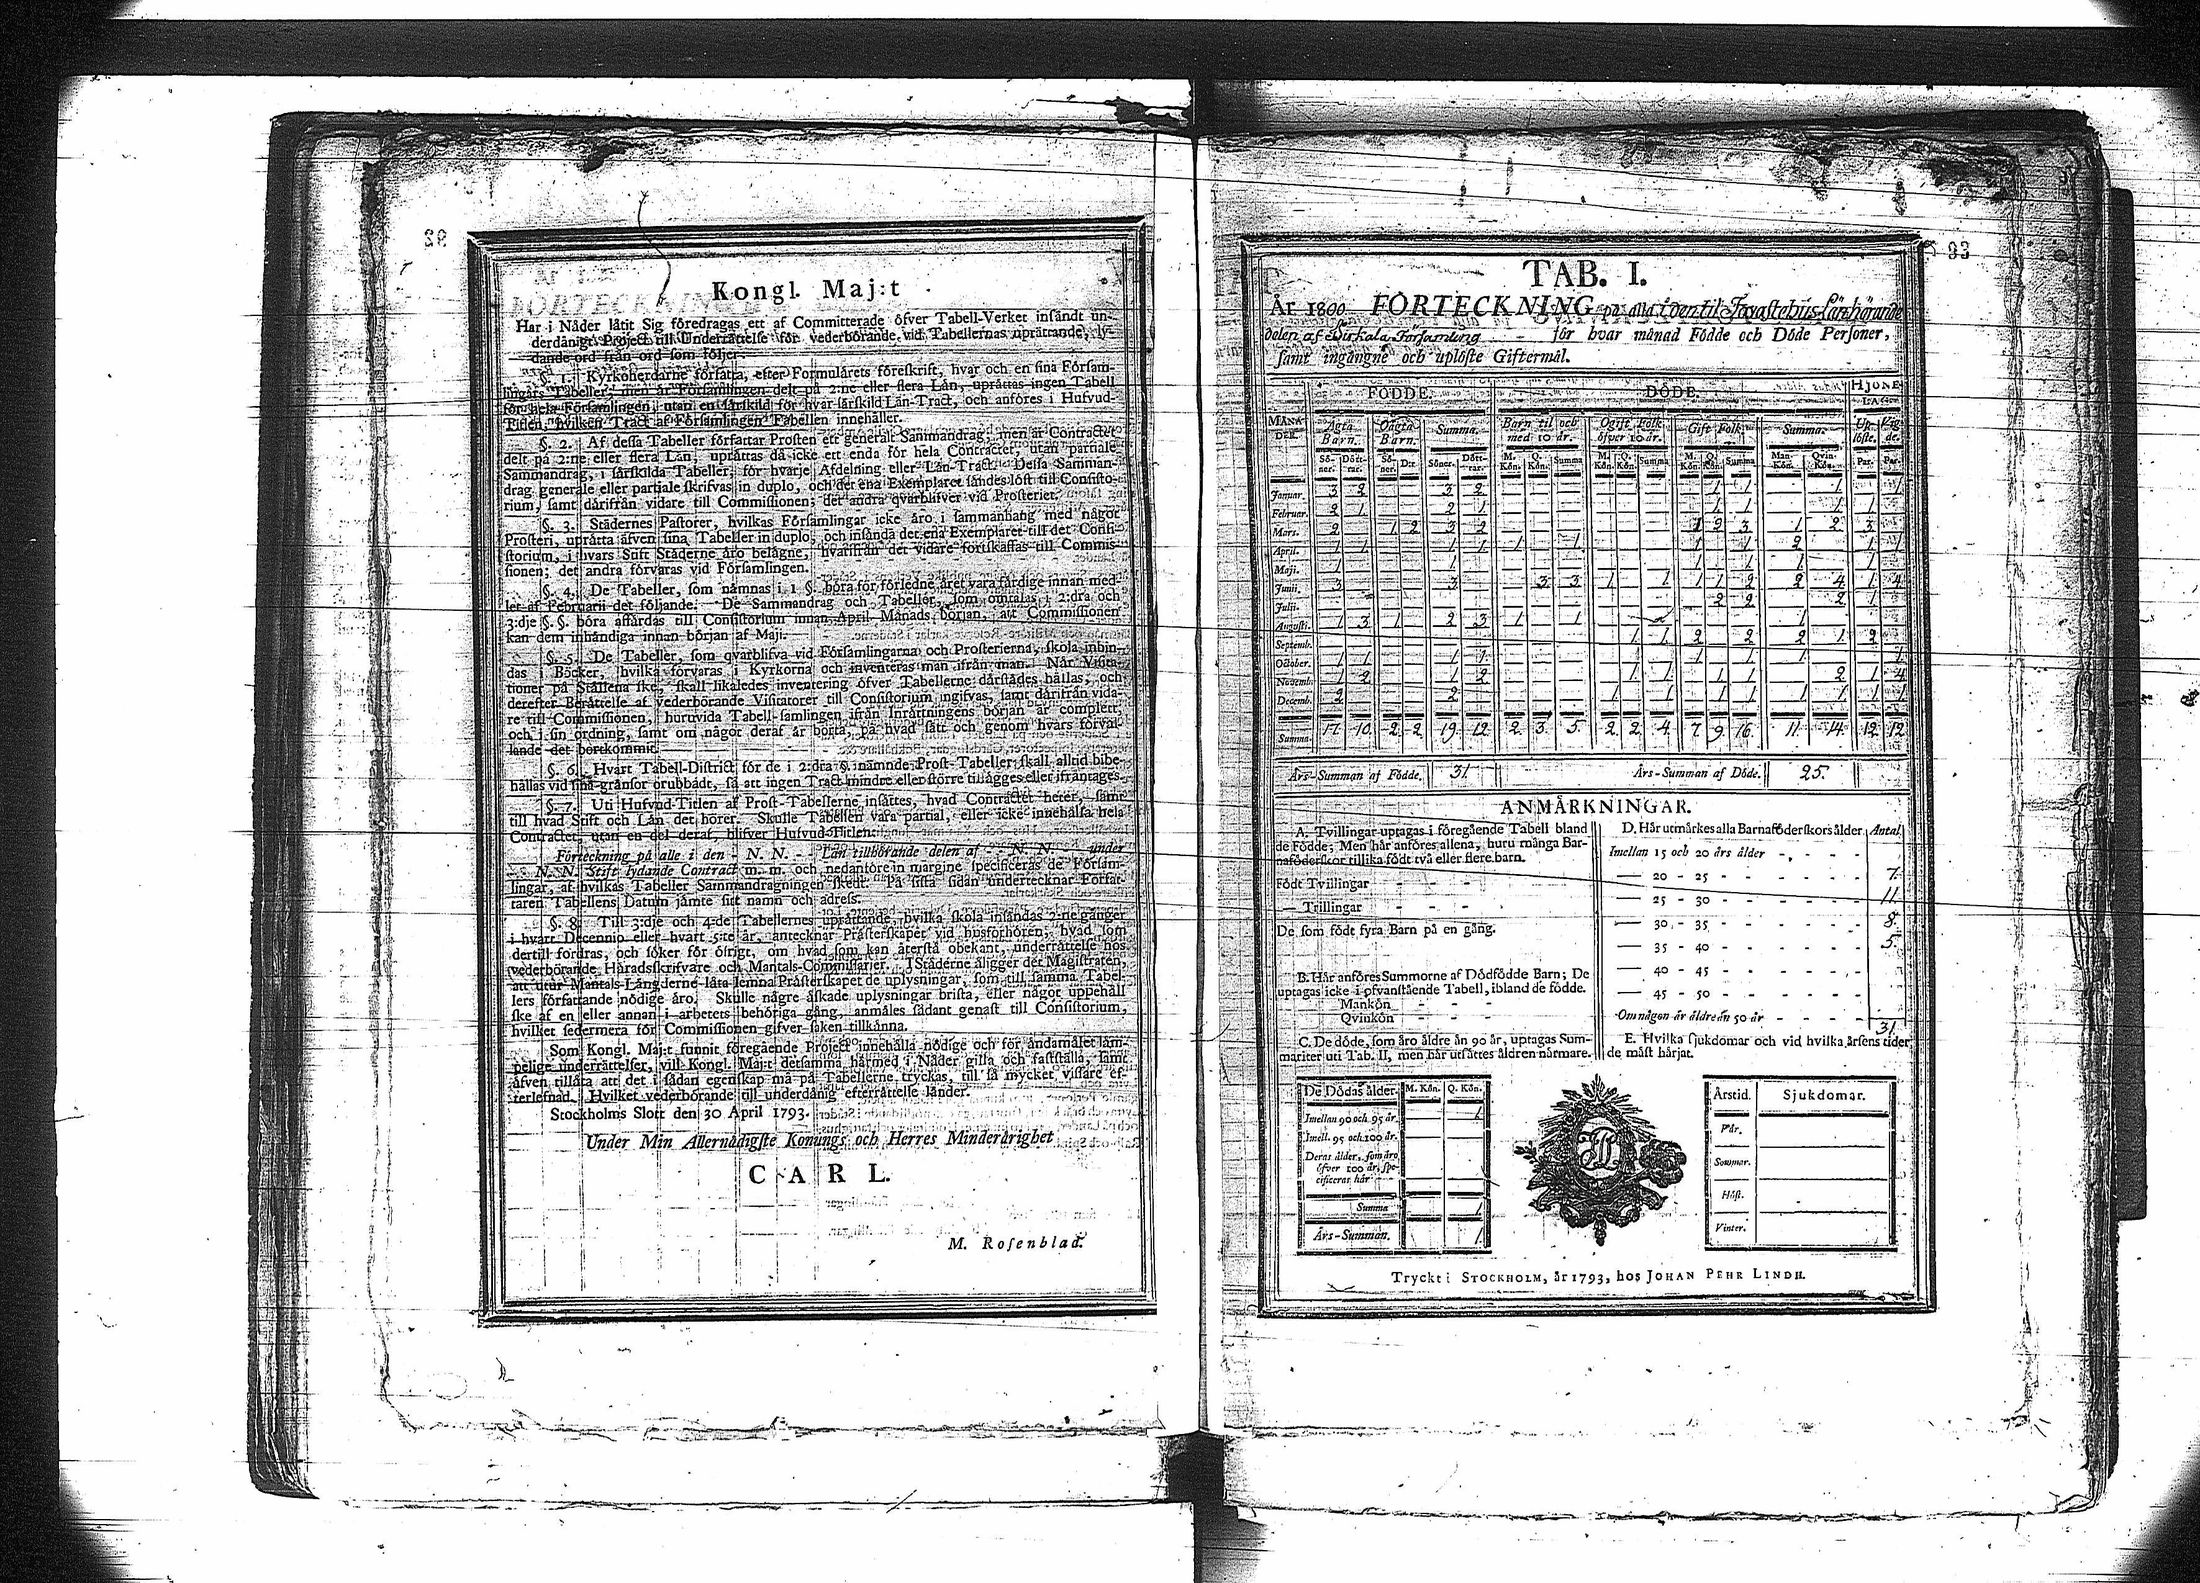 Kongl. Maj:t
Har i Nåder låtit Sig föredragas ett af Committerade öfver Tabell-Verket insändt un-
derdånigt Project till Underrättelse för vederbörande, vid Tabellernas uprättande, ly-
dande ord från ord som följer:
§. 1. Kyrkoherdarne författa, efter Formulärets föreskrift, hvar och en sina Försam-
lingars Tabeller; men är Församlingen delt på 2:ne eller flera Län, uprättas ingen Tabell
för hela Församlingen, utan en särskild för hvar särskild Län-Tract, och anföres i Hufvud-
Titlen, hvilken Tract af Församlingen Tabellen innehåller.
§. 2. Af dessa Tabeller författar Prosten ett generalt Sammandrag; men är Contractet
delt på 2:ne eller flera Län, uprättas då icke ett enda för hela Contractet, utan partiale
Sammandrag, i särskilda Tabeller, för hvarje Afdelning eller Län-Tract. Dessa Samman-
drag generale eller partiale skrifvas in duplo, och det ena Exemplaret sändes löst till Consisto-
rium, samt därifrån vidare till Commissionen; det andra qvarblifver vid Prosteriet.
§. 3. Städernes Pastorer, hvilkas Församlingar icke äro i sammanhang med något
Prosteri, uprätta äfven sina Tabeller in duplo, och insända det ena Exemplaret till det Consi-
storium, i hvars Stift Städerne äro belägne, hvarifrån det vidare fortskaffas till Commis-
sionen; det andra förvaras vid Församlingen.
§. 4. De Tabeller, som nämnas i 1 §. böra för förledne året vara färdige innan med-
let af Februarii det följande. De Sammandrag och Tabeller, som omtalas i 2:dra och
3:dje §. §. böra affärdas till Consistorium innan April Månads början, att Commissionen
kan dem inhändiga innan början af Maji.
§. 5. De Tabeller, som qvarblifva vid Församlingarna och Prosterierna, skola inbin-
das i Böcker, hvilka förvaras i Kyrkorna och inventeras man ifrån man. När Visita-
tioner på Ställena ske, skall likaledes inventering öfver Tabellerne därstädes hållas, och
derefter Berättelse af vederbörande Visitatorer till Consistorium ingifvas, samt därifrån vida-
re till Commissionen, huruvida Tabell-samlingen ifrån Inrättningens början är complett,
och i sin ordning, samt om något deraf är borta, på hvad sätt och genom hvars förvål-
lande det bortkommit.
§. 6. Hvart Tabell-District för de i 2:dra §. nämnde Prost-Tabeller skall alltid bibe-
hållas vid sina gränsor orubbadt, så att ingen Tract mindre eller större tillägges eller ifråntages.
§. 7. Uti Hufvud-Titlen af Prost-Tabellerne insättes, hvad Contractet heter, samt
till hvad Stift och Län det hörer. Skulle Tabellen vara partial, eller icke innehålla hela
Contractet, utan en del deraf, blifver Hufvud-Titlen:
Förteckning på alle i den - N. N. - - Län tillhörande delen af - - N. N. - under
- - N. N. Stift lydande Contract m. m. och nedanföre in margine specificeras de Försam-
lingar, af hvilkas Tabeller Sammandragningen skedt. På sista sidan undertecknar Förfat-
taren Tabellens Datum jämte sitt namn och adress.
§. 8. Till 3:dje och 4:de Tabellernes uprättande, hvilka skola insändas 2:ne gånger
i hvart Decennio eller hvart 5:te år, antecknar Prästerskapet vid husförhören, hvad som
dertill fordras, och söker för öfrigt, om hvad som kan återstå obekant, underrättelse hos
vederbörande Häradsskrifvare och Mantals-Commissarier. I Städerne åligger det Magistraten,
att utur Mantals-Längderne låta lemna Prästerskapet de uplysningar, som till samma Tabel-
lers författande nödige äro. Skulle någre äskade uplysningar brista, eller något uppehåll
ske af en eller annan i arbetets behöriga gång, anmäles sådant genast till Consistorium,
hvilket sedermera för Commissionen gifver saken tillkänna.
Som Kongl. Maj:t funnit föregående Project innehålla nödige och för ändamålet läm-
pelige underrättelser, vill Kongl. Maj:t detsamma härmed i Nåder gilla och fastställa, samt
äfven tillåta att det i sådan egenskap må på Tabellerne tryckas, till så mycket vissare ef-
terlefnad. Hvilket vederbörande till underdånig efterrättelse länder.
Stockholms Slott den 30 April 1793.
Under Min Allernådigste Konungs och Herres Minderårighet
CARL.
M. Rosenblad.
93
TAB. I.
År 1800 FÖRTECKNING på alla i den til Tavastehus Län hörande
delen af Pirkala Församling för hvar månad Födde och Döde Personer,
samt ingångne och uplöste Giftermål.
FÖDDE. DÖDE. HJONELAG.
MÅNADER. Ägta Barn. Oägta Barn. Summa. Barn til och med 10 år. Ogift Folk öfver 10 år. Gift Folk. Summa. Uplöste. Vigde.
Söner. Döttrar. Söner. D:r Söner. Döttrar. M. Kön. Q. Kön. Summa M. Kön. Q. Kön. Summa M. Kön. Q. Kön. Summa Man-Kön. Qvin-Kön. Par. Par.
Januar. 3 2 3 2 1 1 1 1
Februar. 2 1 2 1 1 1 1 1
Mars. 2 1 2 3 2 1 2 3 1 2 3
April. 1 1 1 1 1 1 1 1 2 1 1
Maji. 1 1 1 1 1 1
Junii. 3 3 3 3 1 1 1 1 2 2 4 1 4
Julii. 2 2 2 1
Augusti. 1 3 1 2 3 1 1 1
Septemb. 1 1 2 2 2 1 2
October. 1 1 1 1 1 1 1 1
Novemb. 1 2 1 2 1 1 1 1 2 1 4
Decemb. 2 2 1 1 1 1 1 1 1 1
Summa 17. 10. 2 2 19. 12 2 3. 5. 2 2 4 7 9 16. 11 14. 12 12
Års-Summan af Födde. 31. Års-Summan af Döde. 25.
ANMÄRKNINGAR.
A. Tvillingar uptagas i föregående Tabell bland
de Födde; Men här anföres allena, huru många Bar-
naföderskor tillika födt två eller flere barn.
Födt Tvillingar - - -
— Trillingar - - -
De som födt fyra Barn på en gång.
B. Här anföres Summorne af Dödfödde Barn; De
uptagas icke i ofvanstående Tabell, ibland de födde.
Mankön - - -
Qvinkön - - -
C. De döde, som äro äldre än 90 år, uptagas Sum-
mariter uti Tab. II, men här utsättes åldren närmare.
D. Här utmärkes alla Barnaföderskors ålder. Antal.
Imellan 15 och 20 års ålder - - - -
— 20 - 25 - - - - - 7.
— 25 - 30 - - - - - 11.
— 30 - 35 - - - - - 8.
— 35 - 40 - - - - - 5.
— 40 - 45 - - - - -
— 45 - 50 - - - - -
Om någon är äldre än 50 år - - - -
31.
E. Hvilka sjukdomar och vid hvilka årsens tider
de mäst härjat.
De Dödas ålder. M. Kön. Q. Kön.
Imellan 90 och 95 år. 1
Imell. 95 och 100 år.
Deras ålder, som äro
öfver 100 år, spe-
cificeras här
Summa 1
Års-Summan. 1
Årstid. Sjukdomar.
Vår.
Sommar.
Höst.
Vinter.
Tryckt i STOCKHOLM, år 1793, hos JOHAN PEHR LINDH.